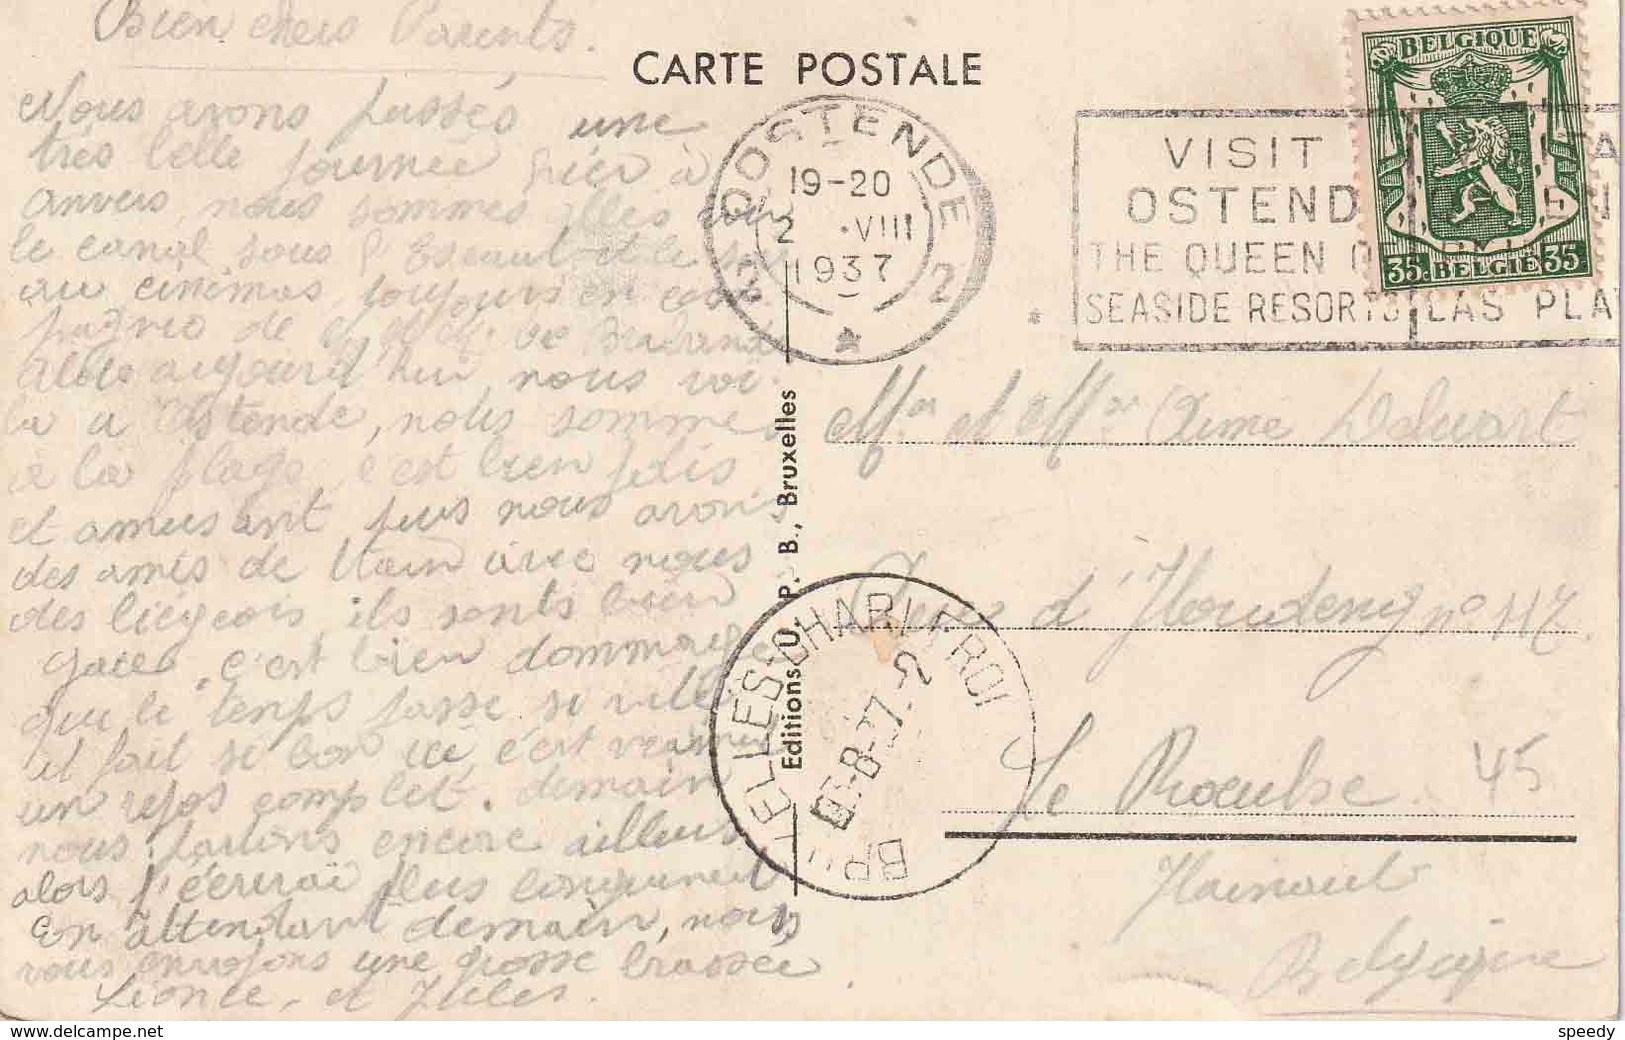 Bien chers Parents.
Nous avons passés une
très belle journée hier à
anvers, nous sommes allés voir
le canal sous l'Escaut et le soir
au cinémas toujours en com-
pagnie de
Alors aujourd'hui, nous voi-
la a Ostende, nous sommes
à la plage, c'est bien jolis
et amusant puis nous avons
des amis de avec nous
des liégeois ils sonts bien
gaies, c'est bien dommage
que le temps passe si vite
il fait si bon ici c'est vraiment
un repos complet. demain
nous partons encore ailleurs
alors j'écrirai plus longuement
En attendant demain, nous
vous envoyons une grosse brassée
Léonce, et Jules.
CARTE POSTALE
OOSTENDE
19-20
2 .VIII
1937
2
VISIT
OSTEND
THE QUEEN O
SEASIDE RESORTS
LAS PLA
BELGIQUE
35. BELGIE 35
Editions O. P. B., Bruxelles
Mr et Mme Aimé
Rue d'Houdeng n° 117
Le Roeulx 45
Hainaut
Belgique
CHARLEROI
-8-37
www.delcampe.net
speedy